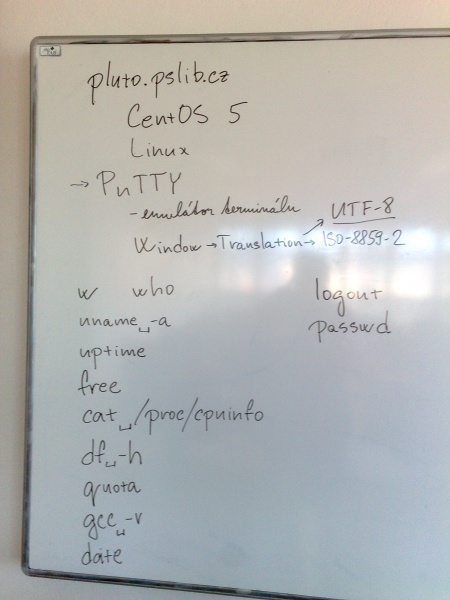 pluto.pslib.cz
CentOS 5
Linux
→ PuTTY
- emulátor terminálu
UTF-8
Window → Translation → ISO-8859-2
w who
logout
uname␣-a
passwd
uptime
free
cat␣/proc/cpuinfo
df␣-h
quota
gcc␣-v
date